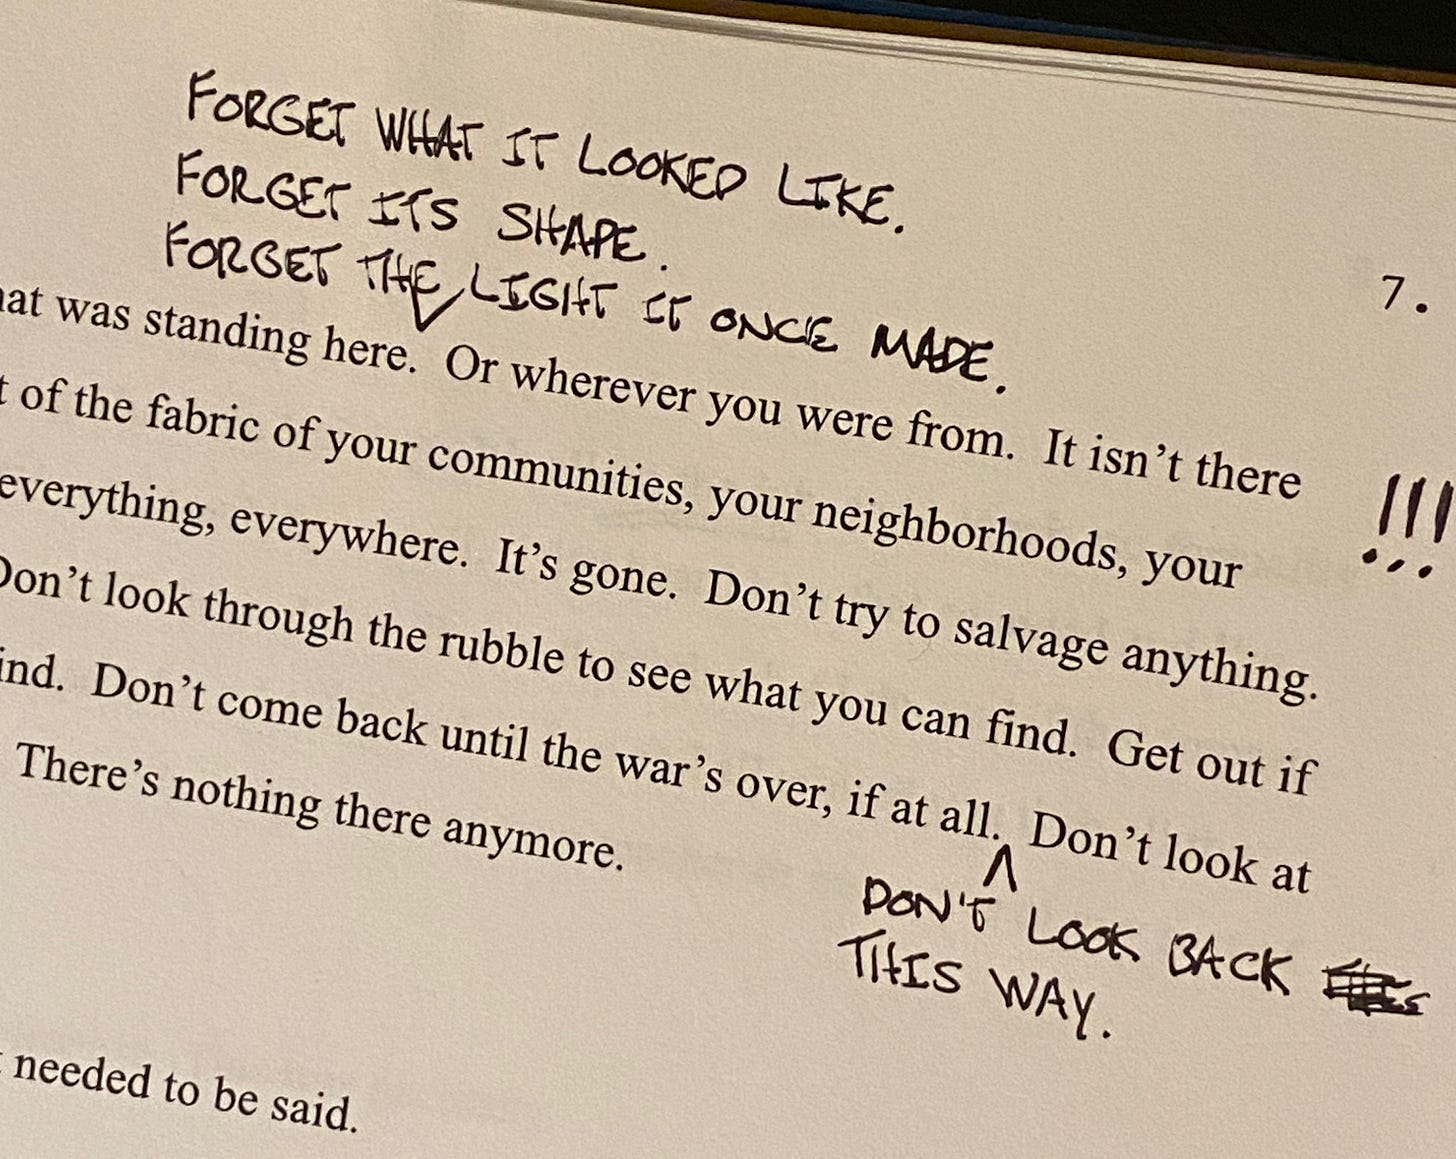 FORGET WHAT IT LOOKED LIKE.
FORGET ITS SHAPE.
FORGET THE LIGHT IT ONCE MADE.
7.
at was standing here. Or wherever you were from. It isn't there
!!!
of the fabric of your communities, your neighborhoods, your
everything, everywhere. It's gone. Don't try to salvage anything.
Don't look through the rubble to see what you can find. Get out if
ind. Don't come back until the war's over, if at all. Don't look at
There's nothing there anymore.
DON'T LOOK BACK
THIS WAY.
needed to be said.